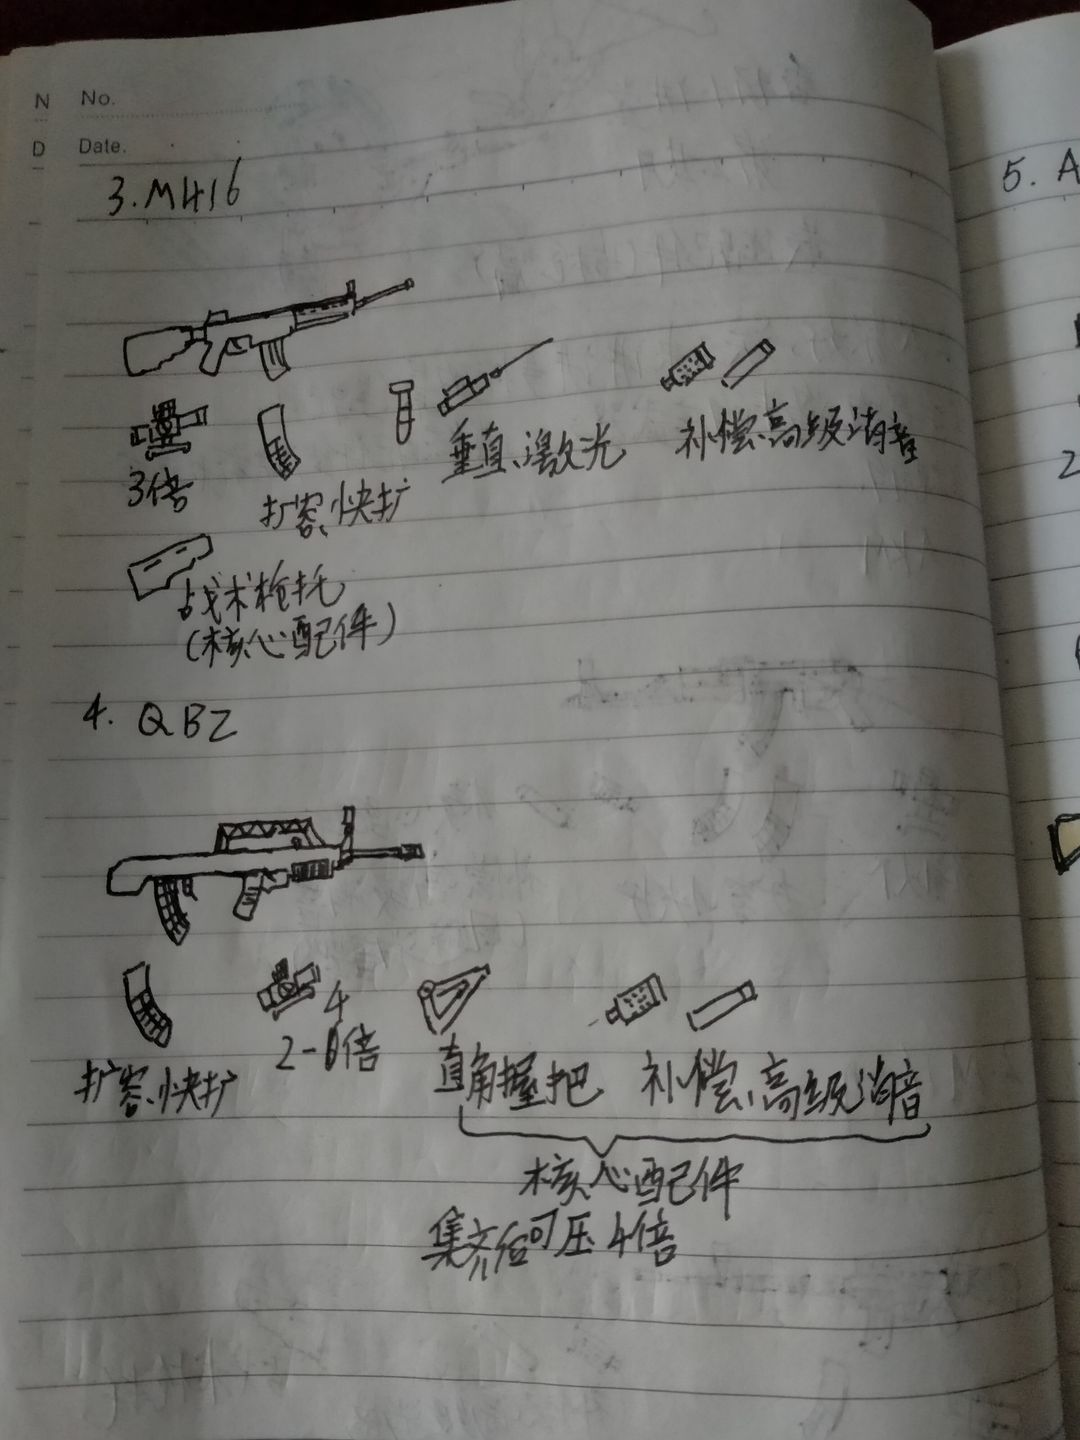 N No.
D Date.
3.M416
5. A
3倍
扩容、快扩
垂直、激光
补偿、高级消音
2
战术枪托
(核心配件)
4. QBZ
扩容、快扩
4
2-倍
直角握把
补偿、高级消音
核心配件
集齐后可压4倍